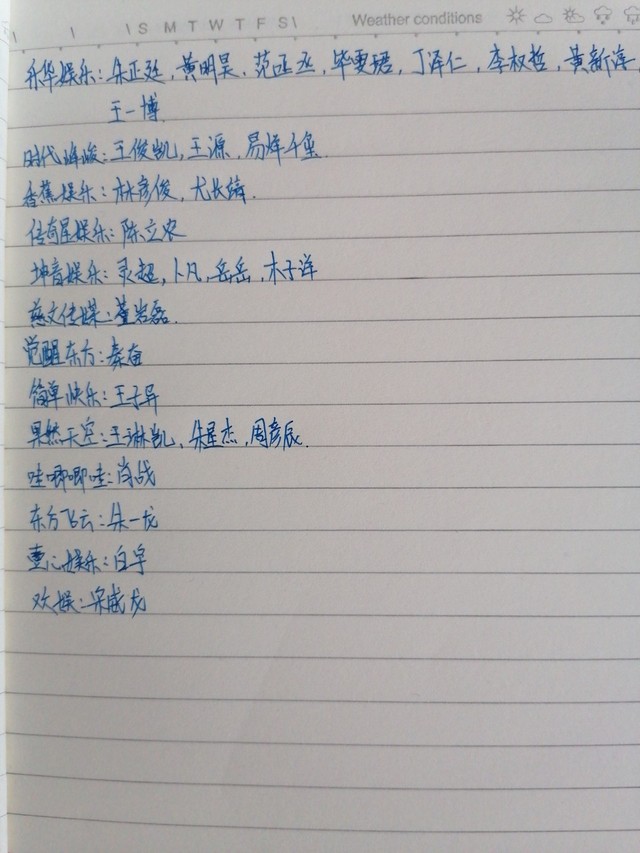 S M T W T F S Weather conditions
乐华娱乐:朱正廷,黄明昊,范丞丞,毕雯珺,丁泽仁,李权哲,黄新淳
王一博
时代峰峻:王俊凯,王源,易烊千玺.
香蕉娱乐:林彦俊,尤长靖.
传奇星娱乐:陈立农
坤音娱乐:灵超,卜凡,岳岳,木子洋
慈文传媒:董岩磊.
觉醒东方:秦奋
简单快乐:王子异
果然天空:王琳凯,朱星杰,周彦辰.
哇唧唧哇:肖战
东方飞云:朱一龙
壹心娱乐:白宇
欢娱:梁威龙